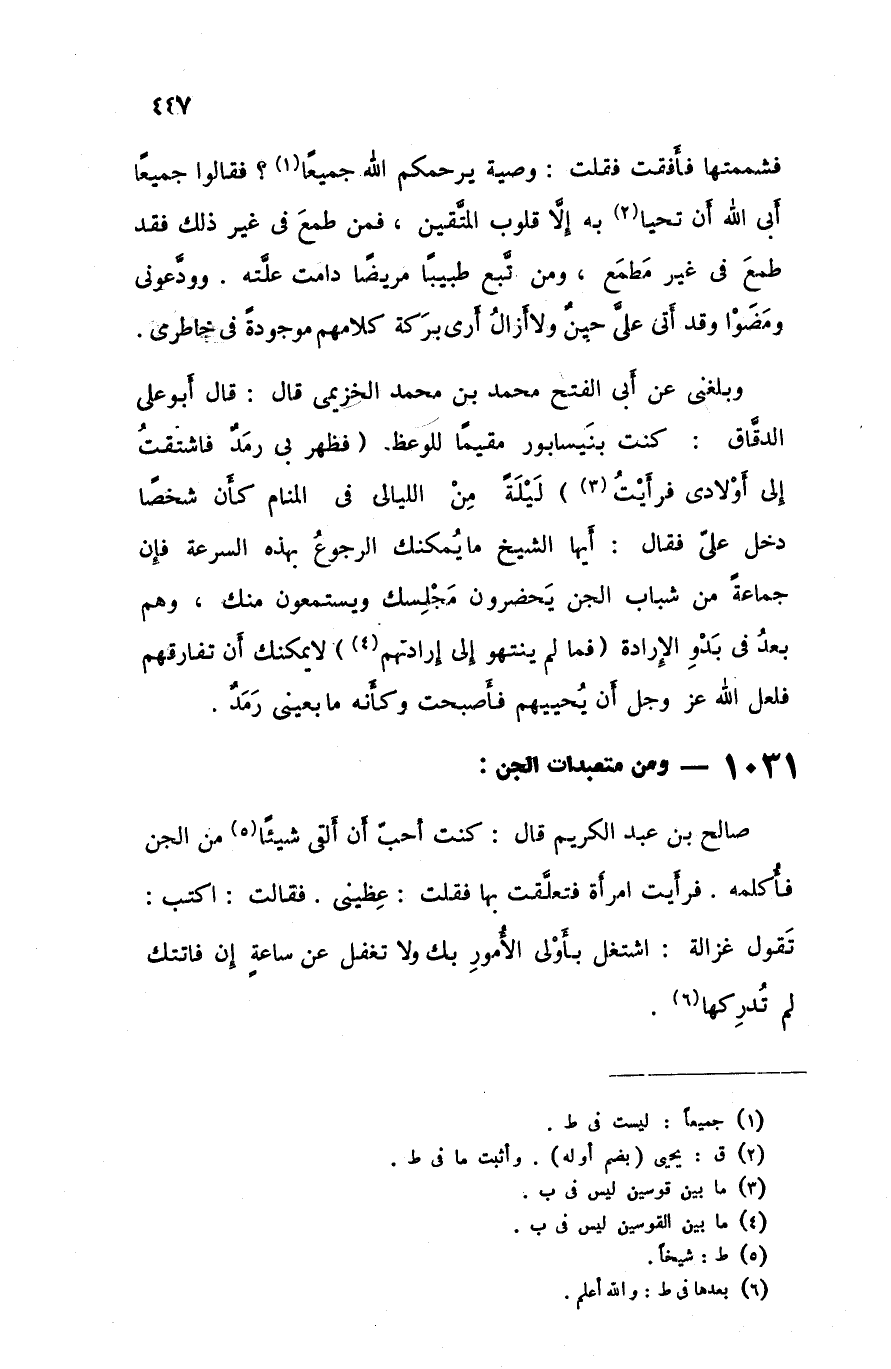 ٤٤٧
فشممتها فأَفقت فقلت : وصية يرحمكم الله جميعًا(١) ؟ فقالوا جميعًا
أَبى الله أَن تحيا(٢) به إِلَّا قلوب المتَّقين ، فمن طمعَ فى غير ذلك فقد
طمعَ فى غير مَطمَع ، ومن تَّبع طبيبًا مريضًا دامت علَّته . وودَّعونى
ومَضَوْا وقد أَتى علىَّ حينٌ ولاأَزالُ أَرى بركَة كلامهم موجودةً فى خاطرى .
وبلغنى عن أَبى الفتح محمد بن محمد الخزيمى قال : قال أَبوعلى
الدقَّاق : كنت بنَيسابور مقيمًا للوعظ. ( فظهر بى رمَدٌ فاشتقتُ
إلى أَوْلادى فرأَيْتُ (٣) ) لَيْلَةً مِنْ الليالى فى المنام كأَن شخصًا
دخل علىّ فقال : أَيها الشيخ مايُمكنك الرجوعُ بهذه السرعة فإِن
جماعةً من شباب الجن يَحضرون مَجْلِسك ويستمعون منك ، وهم
بعدُ فى بَدْوِ الإِرادة ( فما لم ينتهو إلى إرادتهم(٤) ) لايمكنك أَن تفارقهم
فلعل الله عز وجل أَن يُحييهم فأَصبحت وكأَنه مابعينى رَمَدٌ .
١٠٣١ — ومن متعبدات الجن :
صالح بن عبد الكريم قال : كنت أحبّ أَن أَلقى شيئًا(٥) من الجن
فأُكلمه . فرأَيت امرأَة فتعلَّقت بها فقلت : عِظينى . فقالت : اكتب :
تَقول غزالة : اشتغل بأَوْلى الأُمورِ بك ولا تغفل عن ساعةٍ إن فاتتك
لم تُدرِكها(٦) .
(١) جميعاً : ليست فى ط .
(٢) ق : يحيى (بضم أوله) . وأثبت ما فى ط .
(٣) ما بين قوسين ليس فى ب .
(٤) ما بين القوسين ليس فى ب .
(٥) ط : شيخاً.
(٦) بعدها فى ط : والله أعلم .